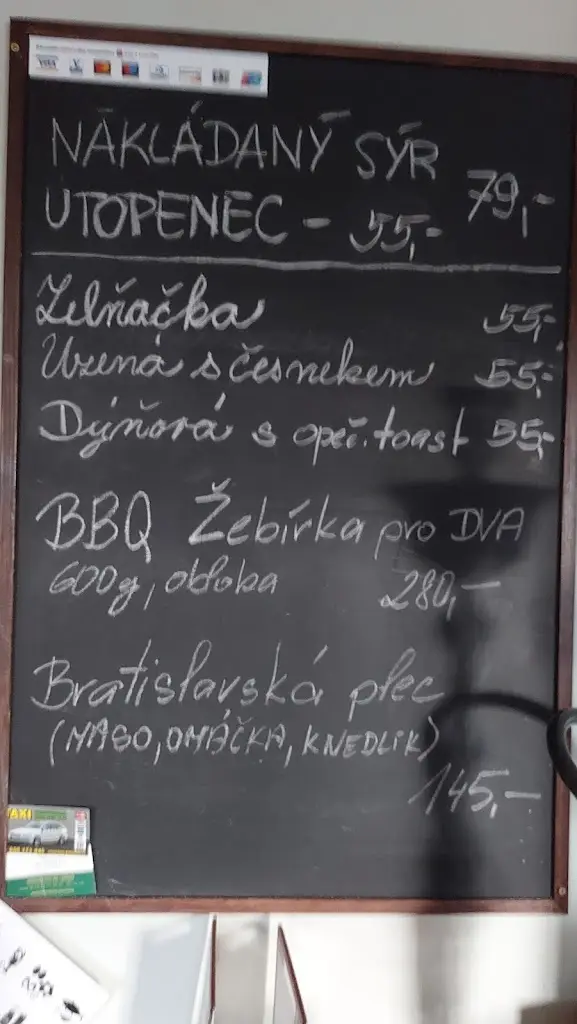 VISA
NAKLÁDANÝ SÝR 79,-
UTOPENEC - 55,-
Zelňačka 55,-
Uzená s česnekem 55,-
Dýňová s opeč. toast 55,-
BBQ Žebírka pro DVA
600g, obloha 280,-
Bratislavská plec
(MASO, OMÁČKA, KNEDLÍK)
145,-
TAXI